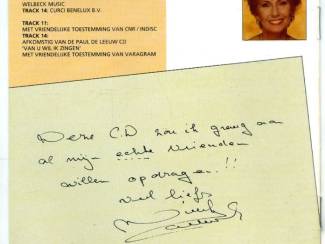 WELBECK MUSIC
TRACK 14: CURCI BENELUX B.V.
TRACK 11:
MET VRIENDELIJKE TOESTEMMING VAN CNR / INDISC
TRACK 14:
AFKOMSTIG VAN DE PAUL DE LEEUW CD
'VAN U WIL IK ZINGEN'
MET VRIENDELIJKE TOESTEMMING VAN VARAGRAM
Deze C.D zou ik graag aan
al mijn echte vrienden
willen opdragen!!
veel liefs